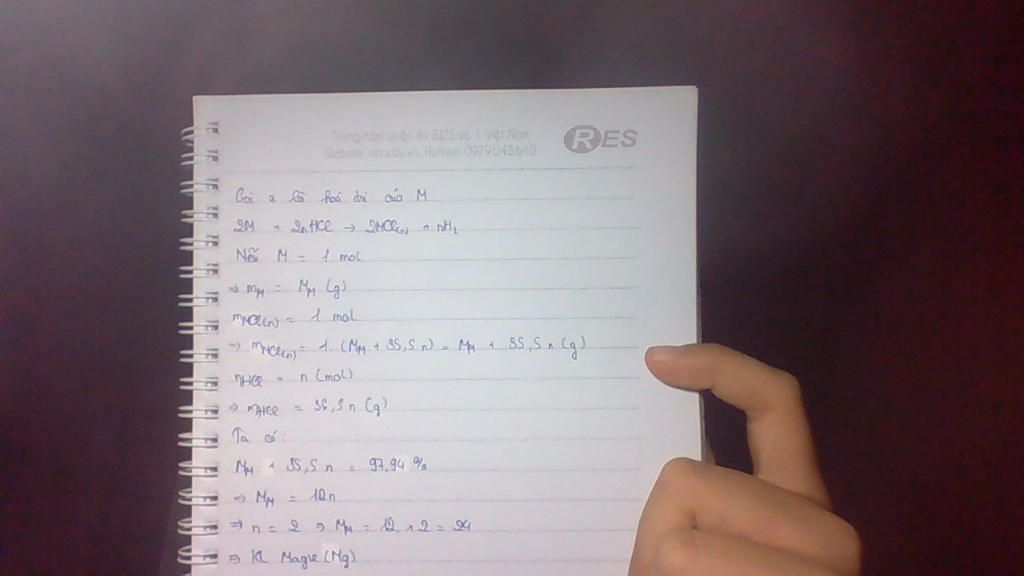 Trung tâm luyện thi IELTS số 1 Việt Nam
Website: res.edu.vn, Hotline: 0979.043.610
RES
Gọi a là hoá trị của M
2M + 2nHCl → 2MCl(n) + nH₂
Nếu M = 1 mol
⇒ mM = MM (g)
mMCl(n) = 1 mol
⇒ mMCl(n) = 1. (MM + 35,5 n) = MM + 35,5 n (g)
nHCl = n (mol)
⇒ mHCl = 35,5 n (g)
Ta có:
MM + 35,5 n = 97,94 %
⇒ MM = 12n
⇒ n = 2 ⇒ MM = 12 × 2 = 24
⇒ KL Magie (Mg)